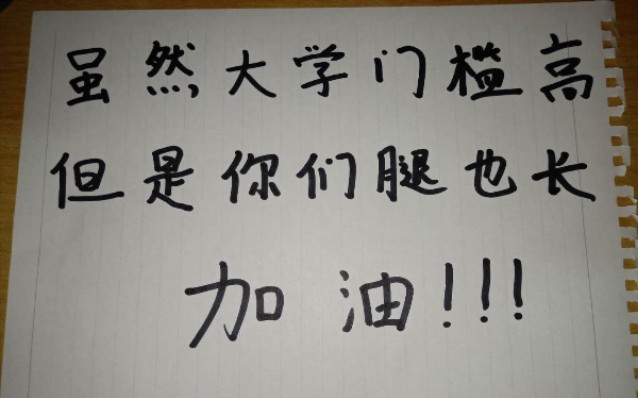 虽然大学门槛高
但是你们腿也长
加油!!!